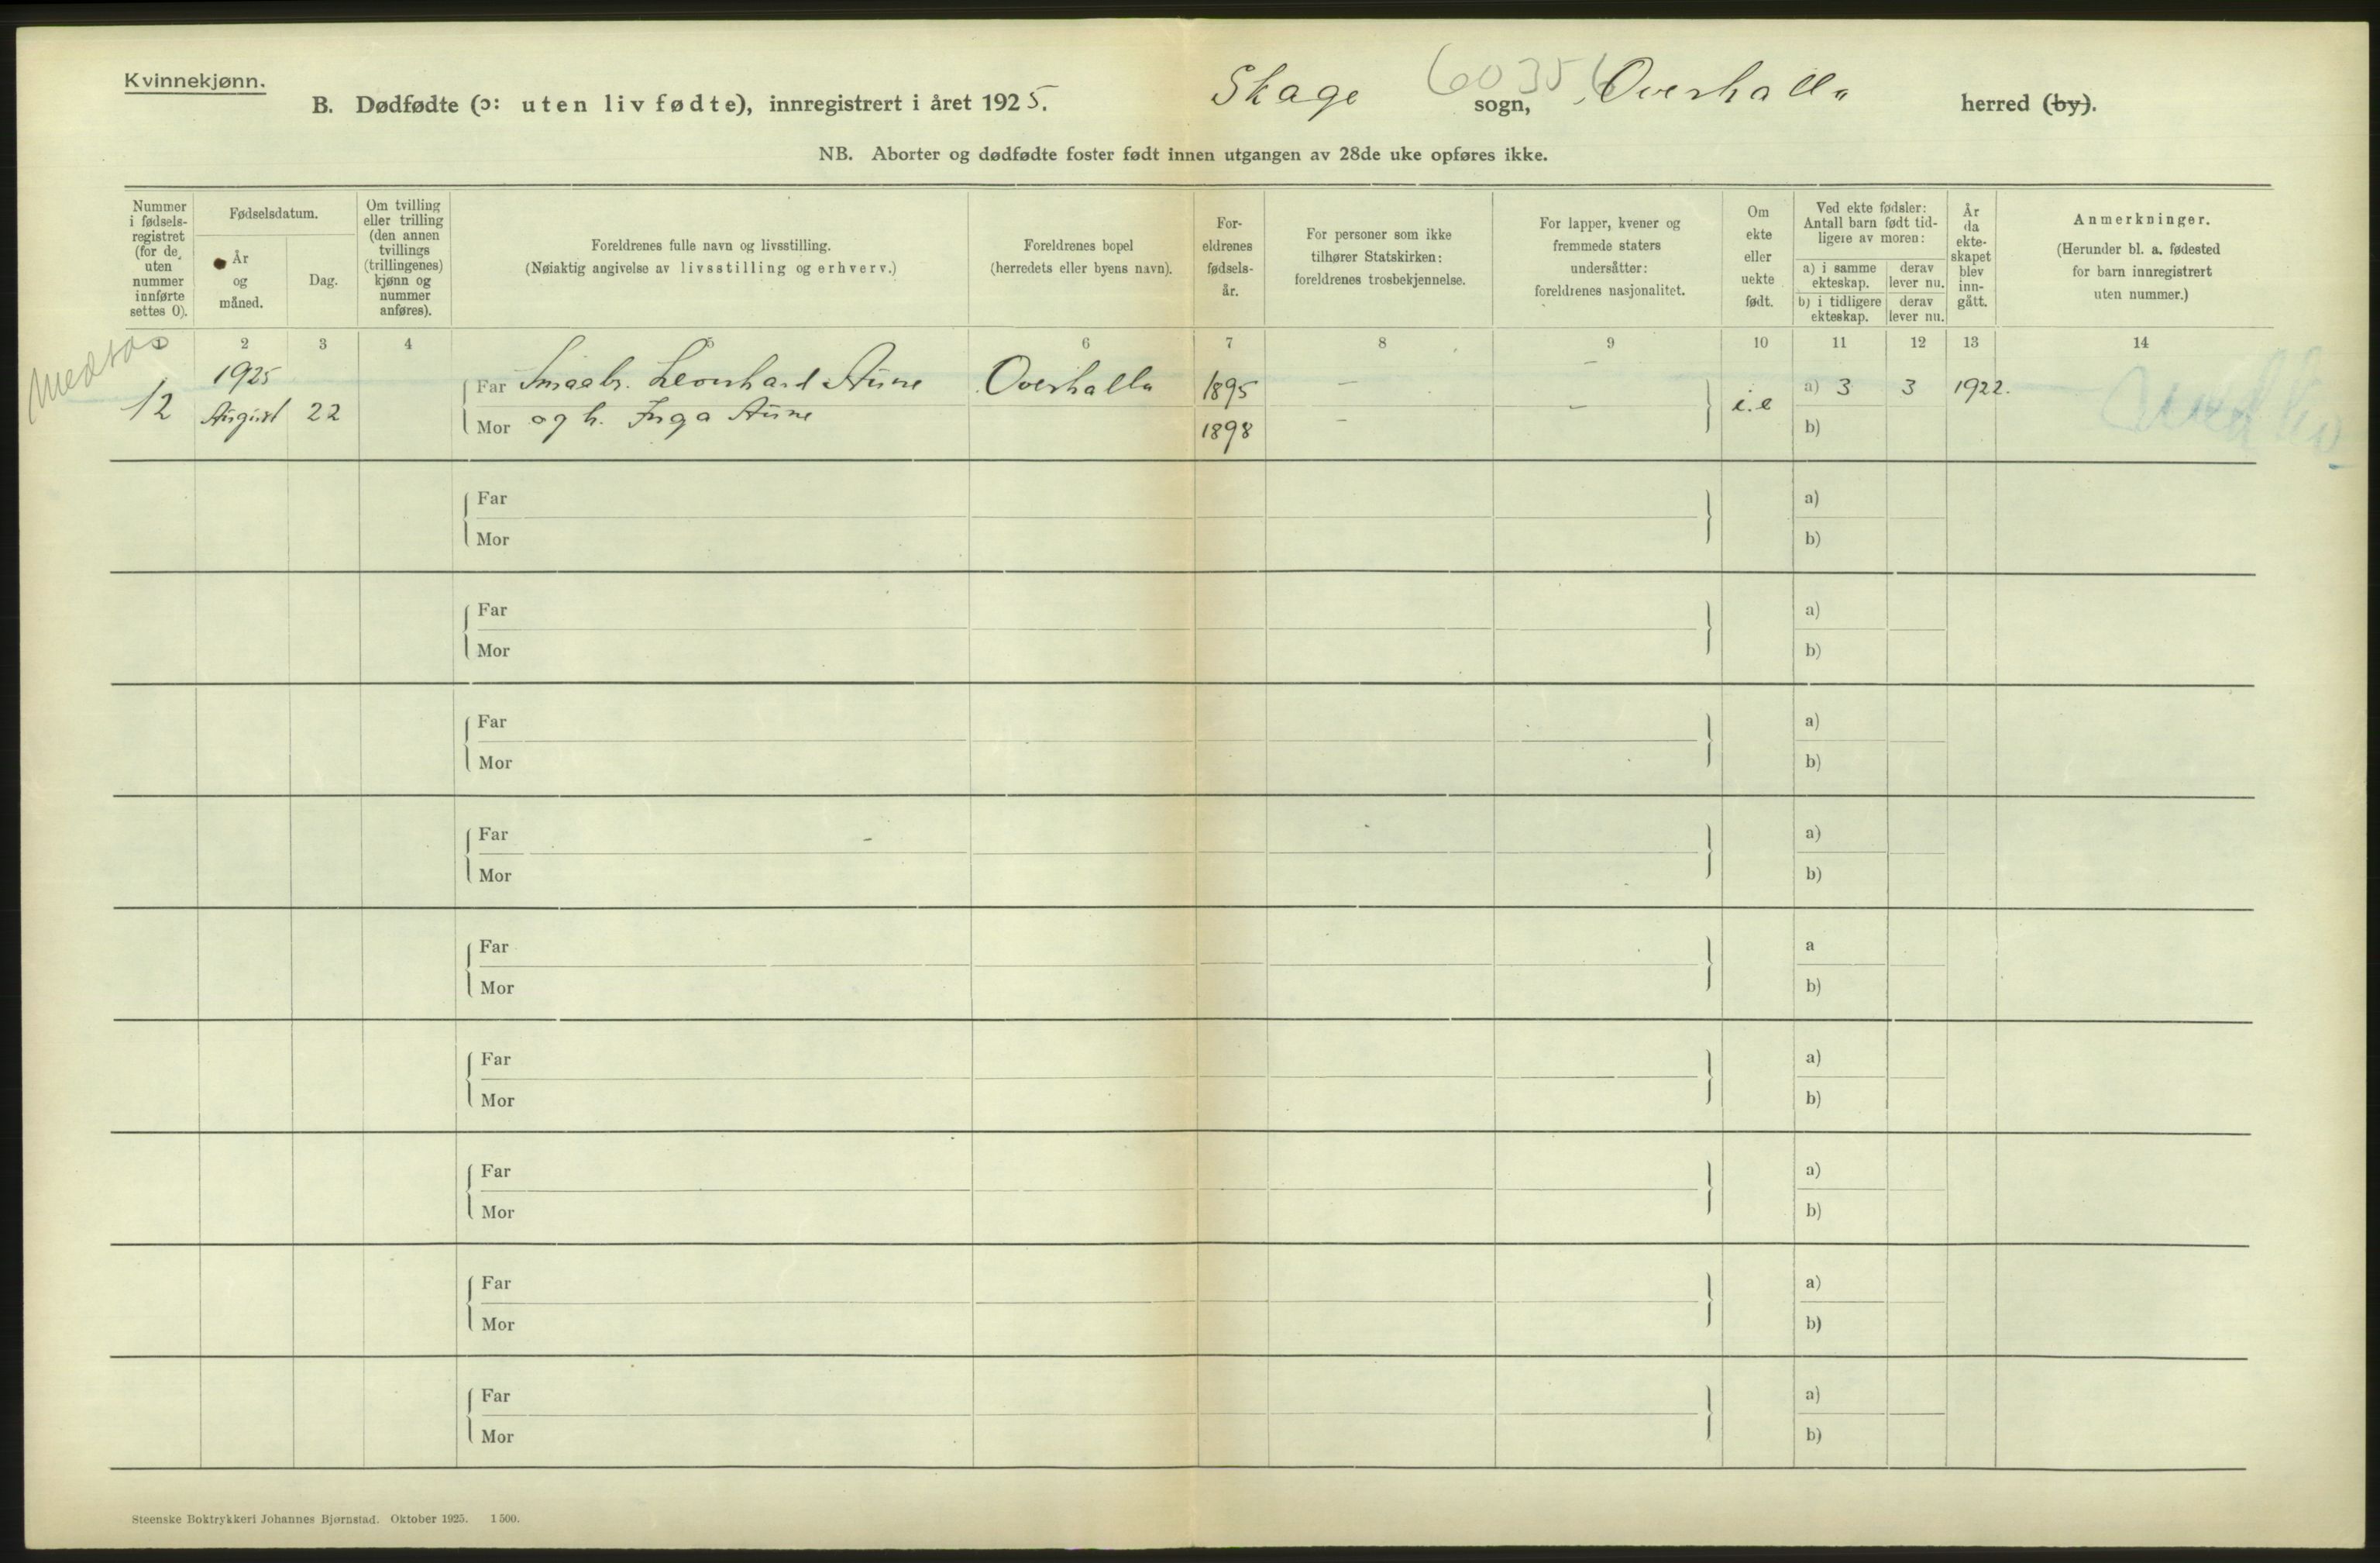 Kvinnekjønn.
B. Dødfødte (ɔ: uten liv fødte), innregistrert i året 1925. Skage sogn, Overhalla herred (by).
6035
NB. Aborter og dødfødte foster født innen utgangen av 28de uke opføres ikke.
Nummer i fødsels-registret (for de uten nummer innførte settes 0).
Fødselsdatum.
År og måned.
Dag.
Om tvilling eller trilling (den annen tvillings (trillingenes) kjønn og nummer anføres).
Foreldrenes fulle navn og livsstilling.
(Nøiaktig angivelse av livsstilling og erhverv.)
Foreldrenes bopel
(herredets eller byens navn).
For-eldrenes fødsels-år.
For personer som ikke tilhører Statskirken: foreldrenes trosbekjennelse.
For lapper, kvener og fremmede staters undersåtter: foreldrenes nasjonalitet.
Om ekte eller uekte født.
Ved ekte fødsler: Antall barn født tid-ligere av moren:
a) i samme ekteskap.
derav lever nu.
b) i tidligere ekteskap.
derav lever nu.
År da ekte-skapet blev inn-gått.
Anmerkninger.
(Herunder bl. a. fødested for barn innregistrert uten nummer.)
2 3 4 6 7 8 9 10 11 12 13 14
1925
12 August 22
Far Smaabr. Leonhard Aune Overhalla 1895 — — i.e a) 3 3 1922.
Mor og h. Inga Aune 1898 — — b)
Far a)
Mor b)
Far a)
Mor b)
Far a)
Mor b)
Far a)
Mor b)
Far a
Mor b)
Far a)
Mor b)
Far a)
Mor b)
Far a)
Mor b)
Far a)
Mor b)
Steenske Boktrykkeri Johannes Bjørnstad. Oktober 1925. 1500.